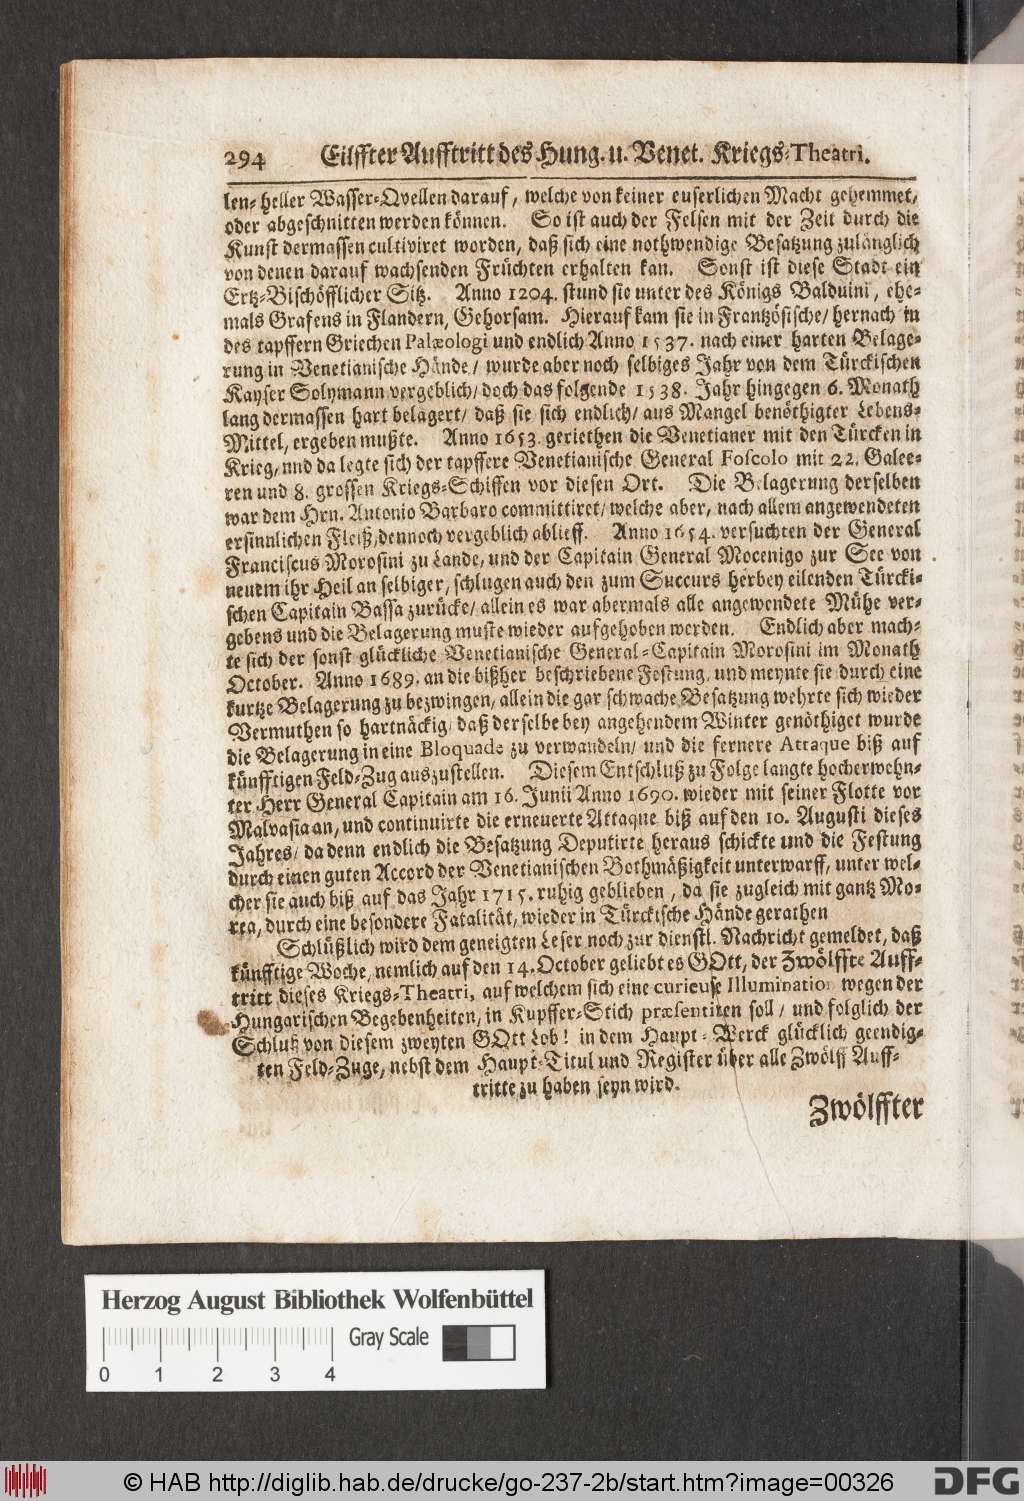 294 Eilffter Aufftritt des Hung. u. Venet. Kriegs-Theatri.
len- heller Wasser-Qvellen darauf, welche von keiner euserlichen Macht gehemmet,
oder abgeschnitten werden können. So ist auch der Felsen mit der Zeit durch die
Kunst dermassen cultiviret worden, daß sich eine nothwendige Besatzung zulänglich
von denen darauf wachsenden Früchten erhalten kan. Sonst ist diese Stadt ein
Ertz-Bischöfflicher Sitz. Anno 1204. stund sie unter des Königs Balduini, ehe-
mals Grafens in Flandern, Gehorsam. Hierauf kam sie in Frantzösische/ hernach in
des tapffern Griechen Palæologi und endlich Anno 1537. nach einer harten Belage-
rung in Venetianische Hände/ wurde aber noch selbiges Jahr von dem Türckischen
Kayser Solymann vergeblich/ doch das folgende 1538. Jahr hingegen 6. Monath
lang dermassen hart belagert/ daß sie sich endlich/ aus Mangel benöthigter Lebens-
Mittel, ergeben mußte. Anno 1653. geriethen die Venetianer mit den Türcken in
Krieg, und da legte sich der tapffere Venetianische General Foscolo mit 22. Galee-
ren und 8. grossen Kriegs-Schiffen vor diesen Ort. Die Belagerung derselben
war dem Hrn. Antonio Barbaro committiret/ welche aber, nach allem angewendeten
ersinnlichen Fleiß, dennoch vergeblich ablieff. Anno 1654. versuchten der General
Franciscus Morosini zu Lande, und der Capitain General Mocenigo zur See von
neuem ihr Heil an selbiger, schlugen auch den zum Succurs herbey eilenden Türcki-
schen Capitain Bassa zurücke/ allein es war abermals alle angewendete Mühe ver-
gebens und die Belagerung muste wieder aufgehoben werden. Endlich aber mach-
te sich der sonst glückliche Venetianische General-Capitain Morosini im Monath
October. Anno 1689. an die bißher beschriebene Festung, und meynte sie durch eine
kurtze Belagerung zu bezwingen, allein die gar schwache Besatzung wehrte sich wieder
Vermuthen so hartnäckig/ daß derselbe bey angehendem Winter genöthiget wurde
die Belagerung in eine Bloquade zu verwandeln/ und die fernere Attaque biß auf
künfftigen Feld-Zug auszustellen. Diesem Entschluß zu Folge langte hocherwehn-
ter Herr General Capitain am 16. Junii Anno 1690. wieder mit seiner Flotte vor
Malvasia an, und continuirte die erneuerte Attaque biß auf den 10. Augusti dieses
Jahres/ da denn endlich die Besatzung Deputirte heraus schickte und die Festung
durch einen guten Accord der Venetianischen Bothmäßigkeit unterwarff, unter wel-
cher sie auch biß auf das Jahr 1715. ruhig geblieben, da sie zugleich mit gantz Mo-
rea, durch eine besondere Fatalität, wieder in Türckische Hände gerathen
Schlüßlich wird dem geneigten Leser noch zur dienstl. Nachricht gemeldet, daß
künfftige Woche, nemlich auf den 14. October geliebt es GOtt, der Zwölffte Auff-
tritt dieses Kriegs-Theatri, auf welchem sich eine curieuse Illumination wegen der
Hungarischen Begebenheiten, in Kupffer-Stich præsentiren soll/ und folglich der
Schluß von diesem zweyten GOtt Lob! in dem Haupt-Werck glücklich geendig-
ten Feld-Zuge, nebst dem Haupt-Titul und Register über alle Zwölff Auff-
tritte zu haben seyn wird.
Zwölffter
Herzog August Bibliothek Wolfenbüttel
Gray Scale
0 1 2 3 4
© HAB http://diglib.hab.de/drucke/go-237-2b/start.htm?image=00326
DFG